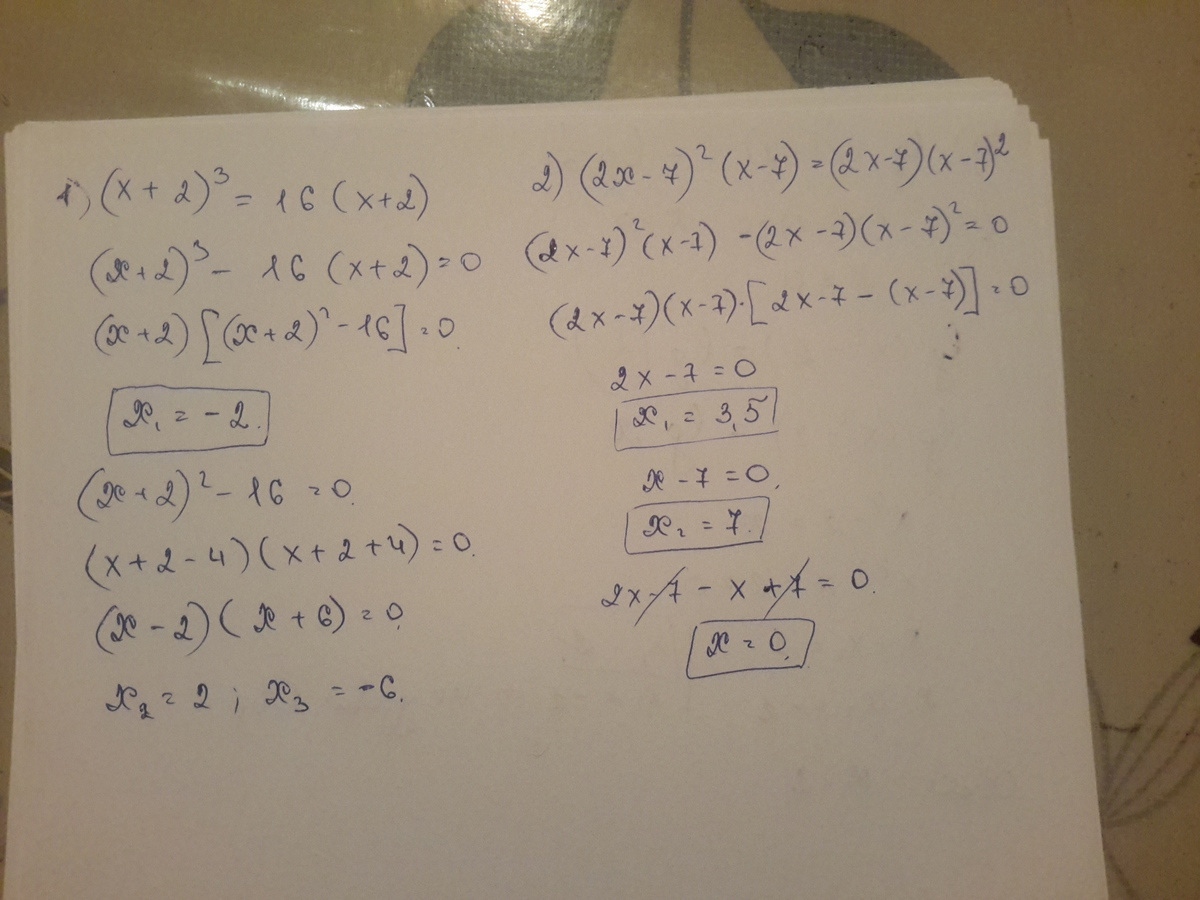 1) (x + 2)³ = 16 (x+2)
(x+2)³ - 16 (x+2) = 0
(x+2) [(x+2)² - 16] = 0.
x₁ = -2.
(x+2)² - 16 = 0.
(x+2-4)(x+2+4) = 0.
(x-2)(x+6) = 0.
x₂ = 2 ; x₃ = -6.
2) (2x-7)² (x-7) = (2x-7)(x-7)²
(2x-7)²(x-7) - (2x-7)(x-7)² = 0
(2x-7)(x-7)·[2x-7 - (x-7)] = 0
2x-7 = 0
x₁ = 3,5
x-7 = 0.
x₂ = 7.
2x-7 - x +7 = 0.
x = 0.